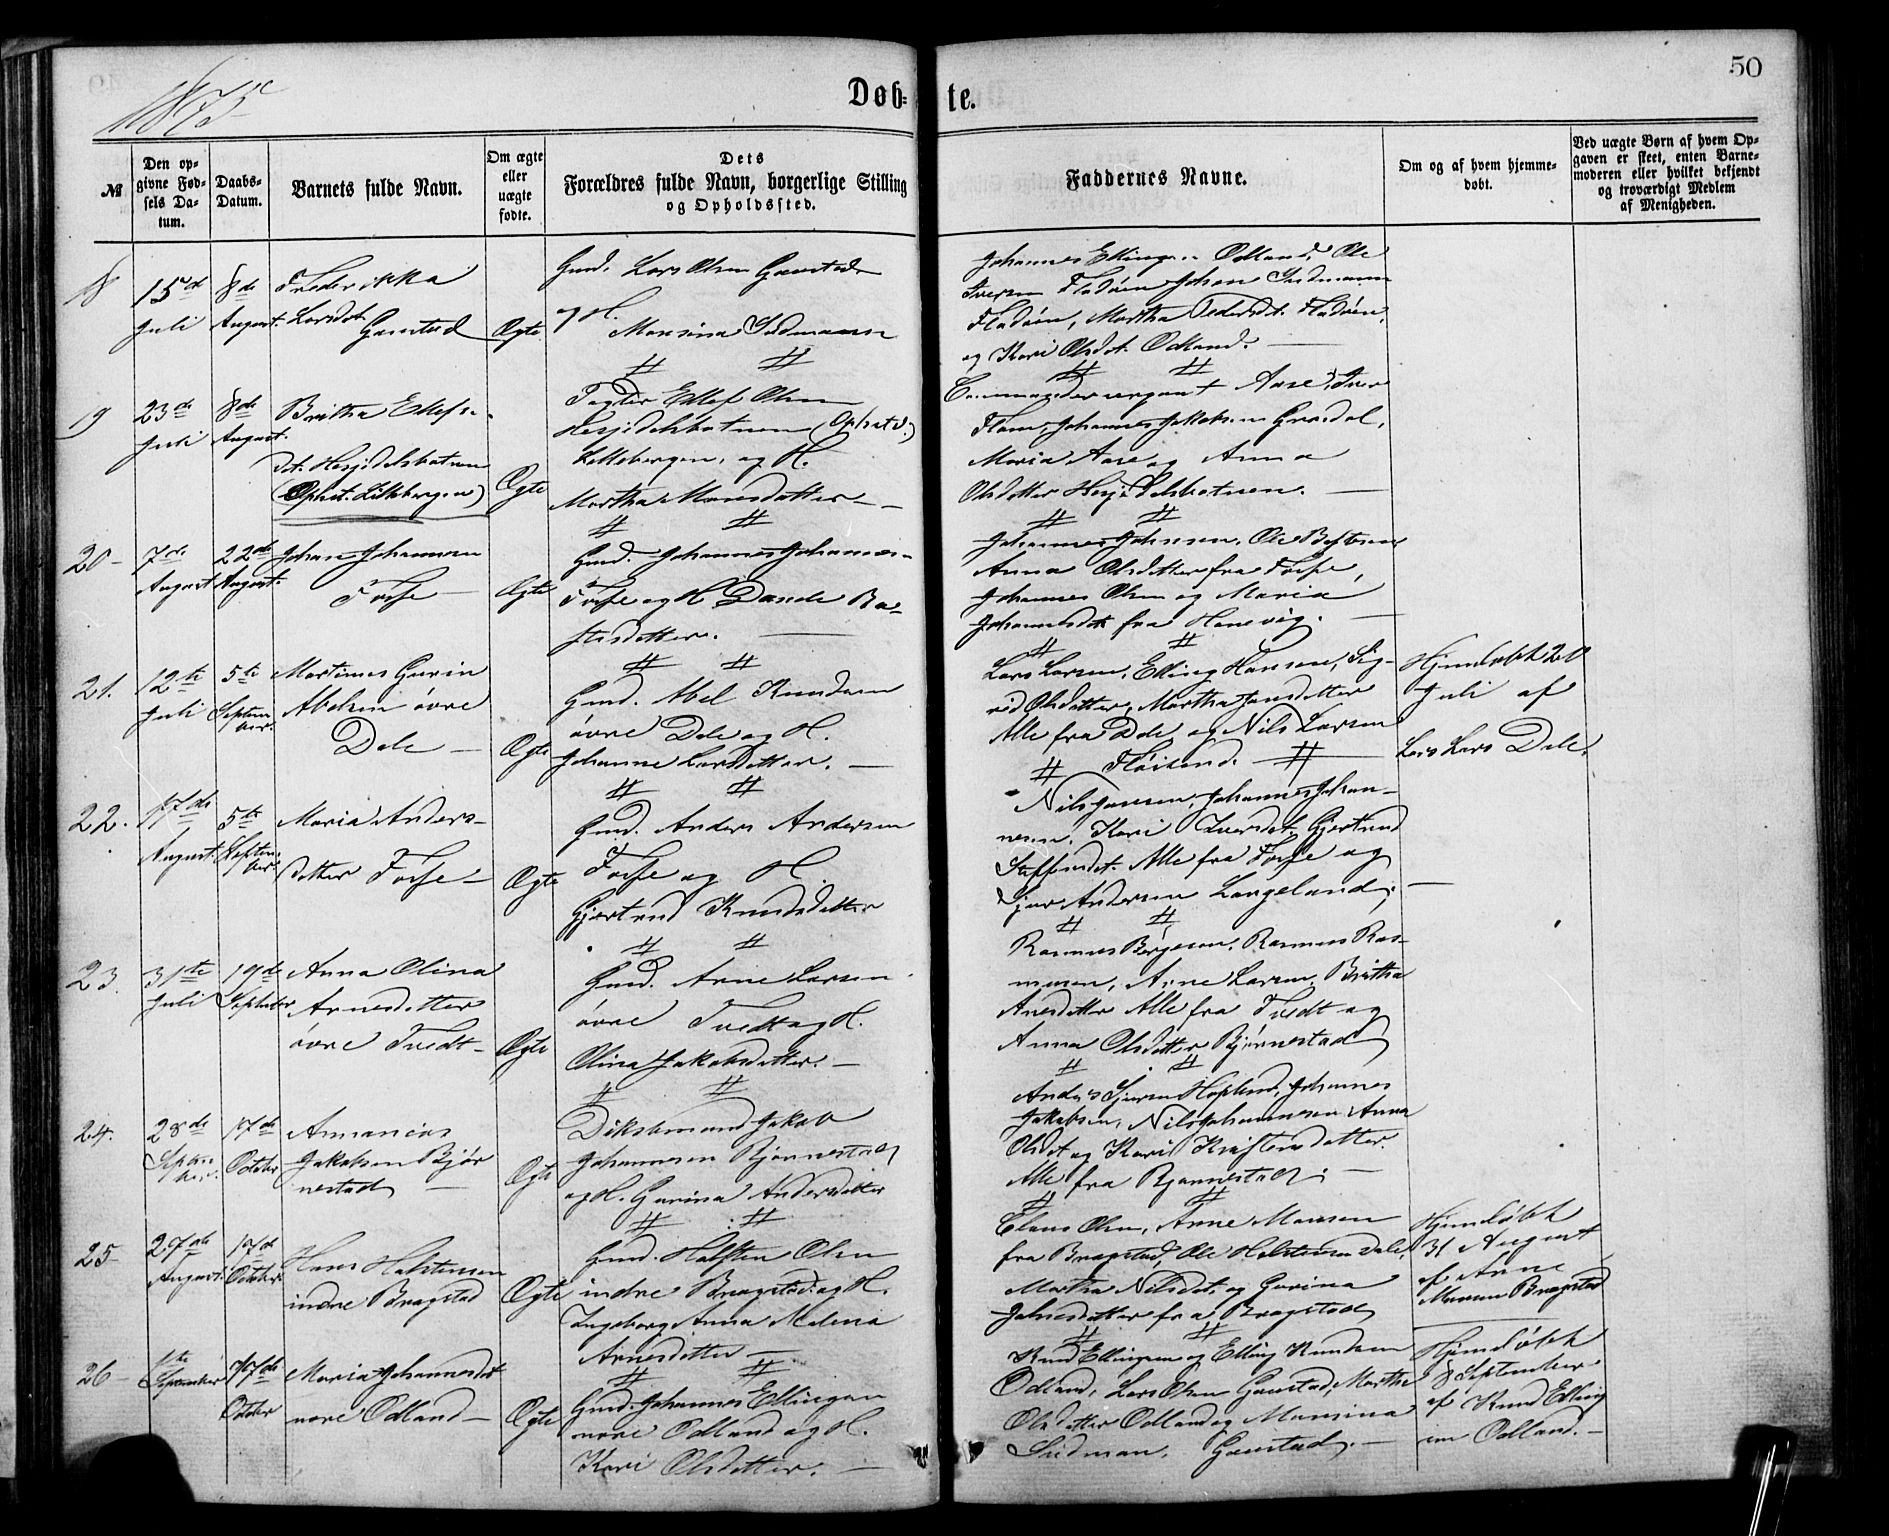 50
1875
Døb- te.
№
Den opgivne Fødsels Datum.
Daabs-Datum.
Barnets fulde Navn.
Om ægte eller uægte fødte.
Dets Forældres fulde Navn, borgerlige Stilling og Opholdssted.
Faddernes Navne.
Om og af hvem hjemmedøbt.
Ved uægte Børn af hvem Opgaven er skeet, enten Barnemoderen eller hvilket bekjendt og troværdigt Medlem af Menigheden.
18
15de Juli
8de August.
Frederikka
Larsdat.
Gaustad
Ægte
Gmd. Lars Olsen Gaustad
og H.
Monsina Sudmann
Johannes Ellingsen Odland, Ole
Iversen Fladøen, Johan Sudmann
Fladøen, Martha Pedersdt. Fladøen,
og Kari Olsdat. Odland.
19
23de Juli
8de August.
Britha Ellefs-
dat. Hesjedalsbotnen
(Ophst. Lillebergen)
Ægte
Ellef Olsen
Hesjedalsbotnen (Ophstd.)
Lillebergen, og H.
Martha Monsdatter
Aase, Iver
Johannes Jakobsen
Maria Aase og Anna
Olsdatter Hesjedalsbotnen.
20
7de August
22de August.
Johan Johannesen
Fosse
Ægte
Gmd. Johannes Johannes-
Fosse og H.
-datter.
Johannes Johnsen, Ole
Anna Olsdatter fra Fosse,
Johannes Olsen og Maria
Johannesdatt fra Hanevig.
21.
12te Juli
5te September.
Martinus Gurin
Abelsen øvre
Dale
Ægte
Gmd. Abel Knudsen
øvre Dale og H.
Johanne Larsdatter.
Lars Larsen, Elling Hansen, Sig-
rid Olsdatter, Martha Jansdatter
Alle fra Dale, og Nils Larsen
Hjemdøbt 20
Juli af
Lars Lars Dale.
22.
17de August.
5te September
Maria Anders-
datter Fosse
Ægte
Gmd. Anders Andersen
Fosse og H.
Gjertrud Knudsdatter
Nils Jansen, Johannes Johan-
nesen, Kari Iversdt. Gjertrud
Steffensdt. Alle fra Fosse og
Sjur Andersen Langeland.
23.
31te Juli
19de September
Anna Olina
Arnesdatter
øvre Tvedt
Ægte
Gmd. Arne Larsen
øvre Tvedt og H.
Olina Jakobsdatter.
Rasmus Børgesen, Rasmus Ras-
musen, Arne Larsen, Britha
Arnesdatter Alle fra Tvedt og
Anna Olsdatter Bjørnestad
24.
28de September.
17de October
Annanias
Jakobsen Bjør
nestad
Ægte
Jakob
Johannesen Bjørnestad
og H. Gurina Andersdatter
Anders Sjursen Hopland, Johannes
Jakobsen, Nils Johannesen, Anna
Olsdt. og Kari Kristensdatter
Alle fra Bjørnestad.
25
27de August.
17de October
Hans Halstensen
indre Bragstad
Ægte
Gmd. Halsten Olsen
indre Bragstad og H.
Ingeborg Anna Malena
Arnesdatter
Claus Olsen, Arne Monsen
fra Bragstad, Ole Halstensen Dale,
Martha Nilsdat. og Gurina
Johnesdatter fra Bragstad
Hjemdøbt
31 August
af Arne
Monsen Bragstad
26
1te September
17de October
Maria Johannesdat
nore Odland
Ægte
Gmd. Johannes Ellingsen
nore Odland og H.
Kari Olsdatter.
Knud Ellingsen og Elling Knudsen
Odland, Lars Olsen Gaustad, Martha
Olsdatter Odland og Monsina
Sudman, Gaustad.
Hjemdøbt
8 September
af Knud Elling
sen Odland.